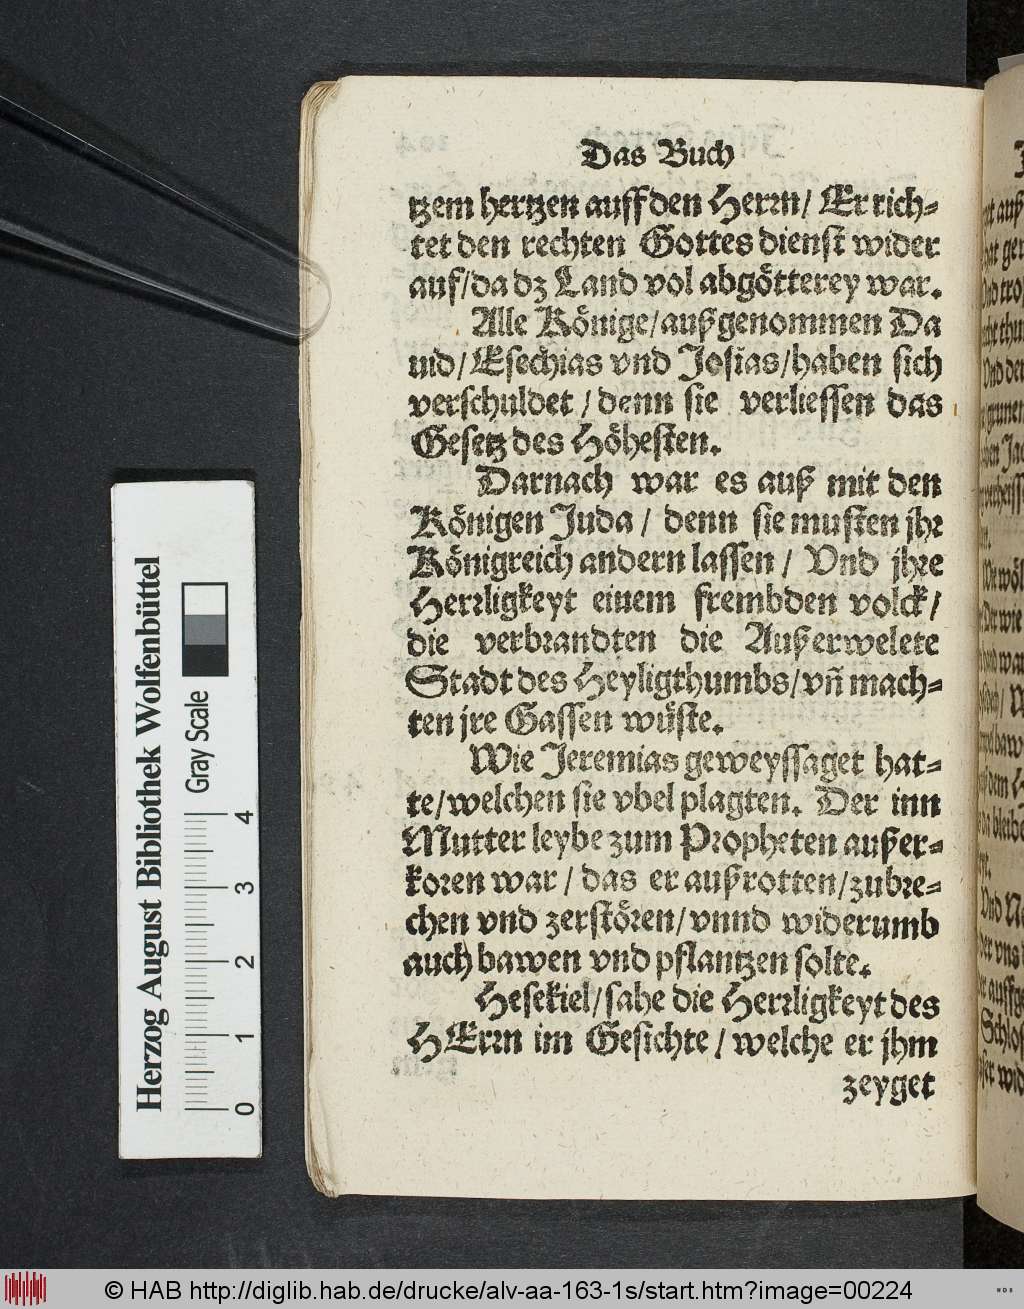 Das Buch
tzem hertzen auff den Herrn/ Er rich-
tet den rechten Gottes dienst wider
auf/da dz Land vol abgötterey war.
Alle Könige/außgenommen Da
uid/Esechias vnd Josias/haben sich
verschuldet/denn sie verliessen das
Gesetz des Höhesten.
Darnach war es auß mit den
Königen Juda/ denn sie musten jhr
Königreich andern lassen/ Vnd jhre
Herrligkeyt eiuem frembden volck/
die verbrandten die Außerwelete
Stadt des Heyligthumbs/vñ mach-
ten jre Gassen wüste.
Wie Jeremias geweyssaget hat-
te/welchen sie vbel plagten. Der inn
Mutter leybe zum Propheten außer-
koren war/ das er außrotten/zubre-
chen vnd zerstören/vnnd widerumb
auch bawen vnd pflantzen solte.
Hesekiel/sahe die Herrligkeyt des
HErrn im Gesichte/welche er jhm
zeyget
Herzog August Bibliothek Wolfenbüttel
Gray Scale
0 1 2 3 4
© HAB http://diglib.hab.de/drucke/alv-aa-163-1s/start.htm?image=00224